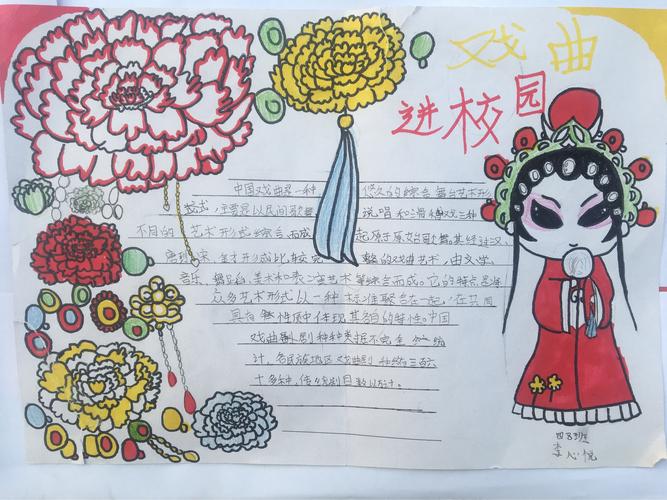 戏曲
进校园
中国戏曲是一种 悠久的综合舞台艺术形
式,主要是以民间歌舞 说唱和滑稽戏三种
不同的艺术形式综合而成 起原于原始歌舞,其经过汉、
唐到 宋、金才形成比较完 整的戏曲艺术,由文学、
音乐、舞蹈、美术和表演艺术等综合而成。它的特点是将
众多艺术形式以一种 标准聚合在一起,在共同
具有 性质中体现其各自的特性。中国
戏曲剧 种种类据不完全 统
计,各民族地区戏曲剧 种约三百六
十多种,传统剧目数以 计。
四3班
李心悦